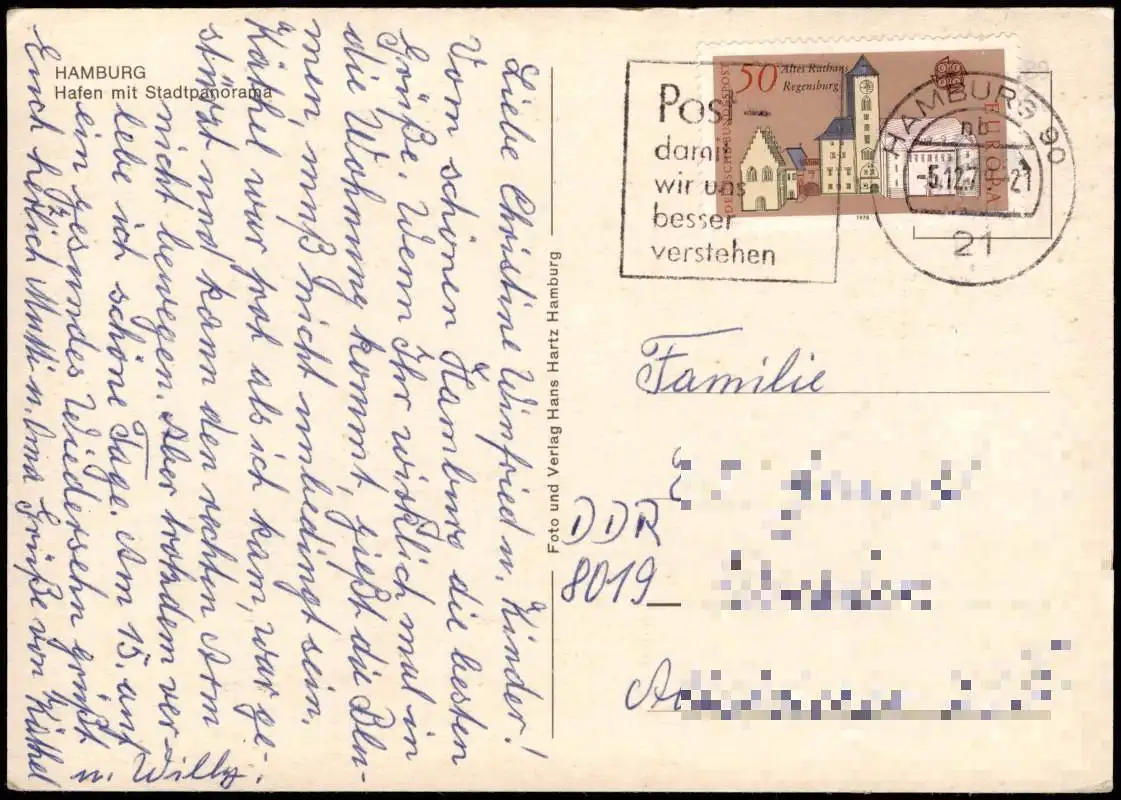 HAMBURG
Hafen mit Stadtpanorama
Liebe Christine Winfried u. Kinder!
Vom schönen Hamburg die besten
Grüße. Wenn Ihr wirklich mal in
die Wohnung kommt, gießt die Blu-
men, muß nicht unbedingt sein.
Käthel war froh als ich kam, war ge-
stürzt und kann den rechten Arm
nicht bewegen. Aber trotzdem ver-
lebe ich schöne Tage. Am 15. auf
ein gesundes Wiedersehn grüßt
Euch herzlich Mutti u. Oma Grüße von Käthel
u. Willy.
Foto und Verlag Hans Hartz Hamburg
Post -
damit
wir uns
besser
verstehen
50
Altes Rathaus
Regensburg
DEUTSCHE BUNDESPOST
EUROPA
1978
HAMBURG 90
nb
-5.12.7 21
21
Familie
DDR
8019